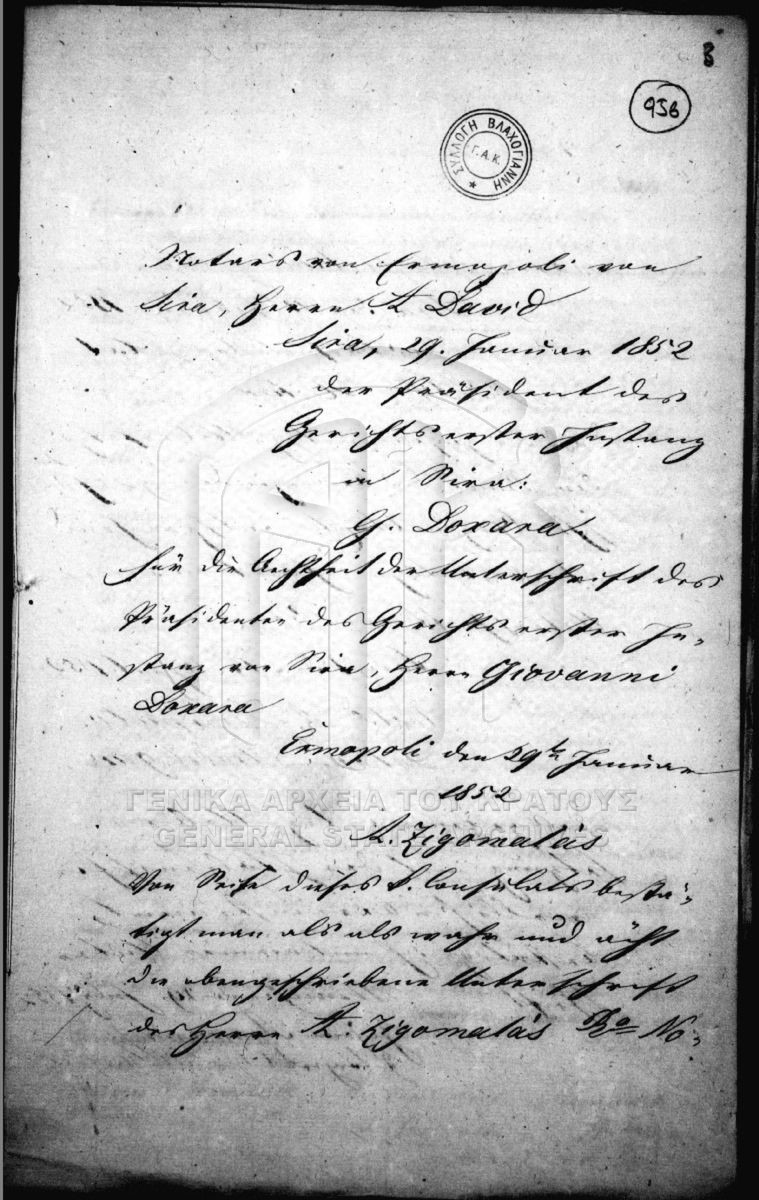 8
956
ΣΥΛΛΟΓΗ ΒΛΑΧΟΓΙΑΝΝΗ
Γ.Α.Κ.
Notars von Ermopoli von
Sira, Herrn A David
Sira, 29. Januar 1852
der Präsident des
Gerichts erster Instanz
in Sira:
G. Doxara.
für die Aechtheit der Unterschrift des
Präsidenten des Gerichts erster In-
stanz von Sira, Herrn Giovanni
Doxara
Ermopoli den 29ten Januar
1852
ΓΕΝΙΚΑ ΑΡΧΕΙΑ ΤΟΥ ΚΡΑΤΟΥΣ
GENERAL STATE ARCHIVES
A. Zigomalás
Von Seite dieses k. Consulats bestä-
tigt man als als wahr und ächt
die obengeschriebene Unterschrift
des Herrn A. Zigomalás No-